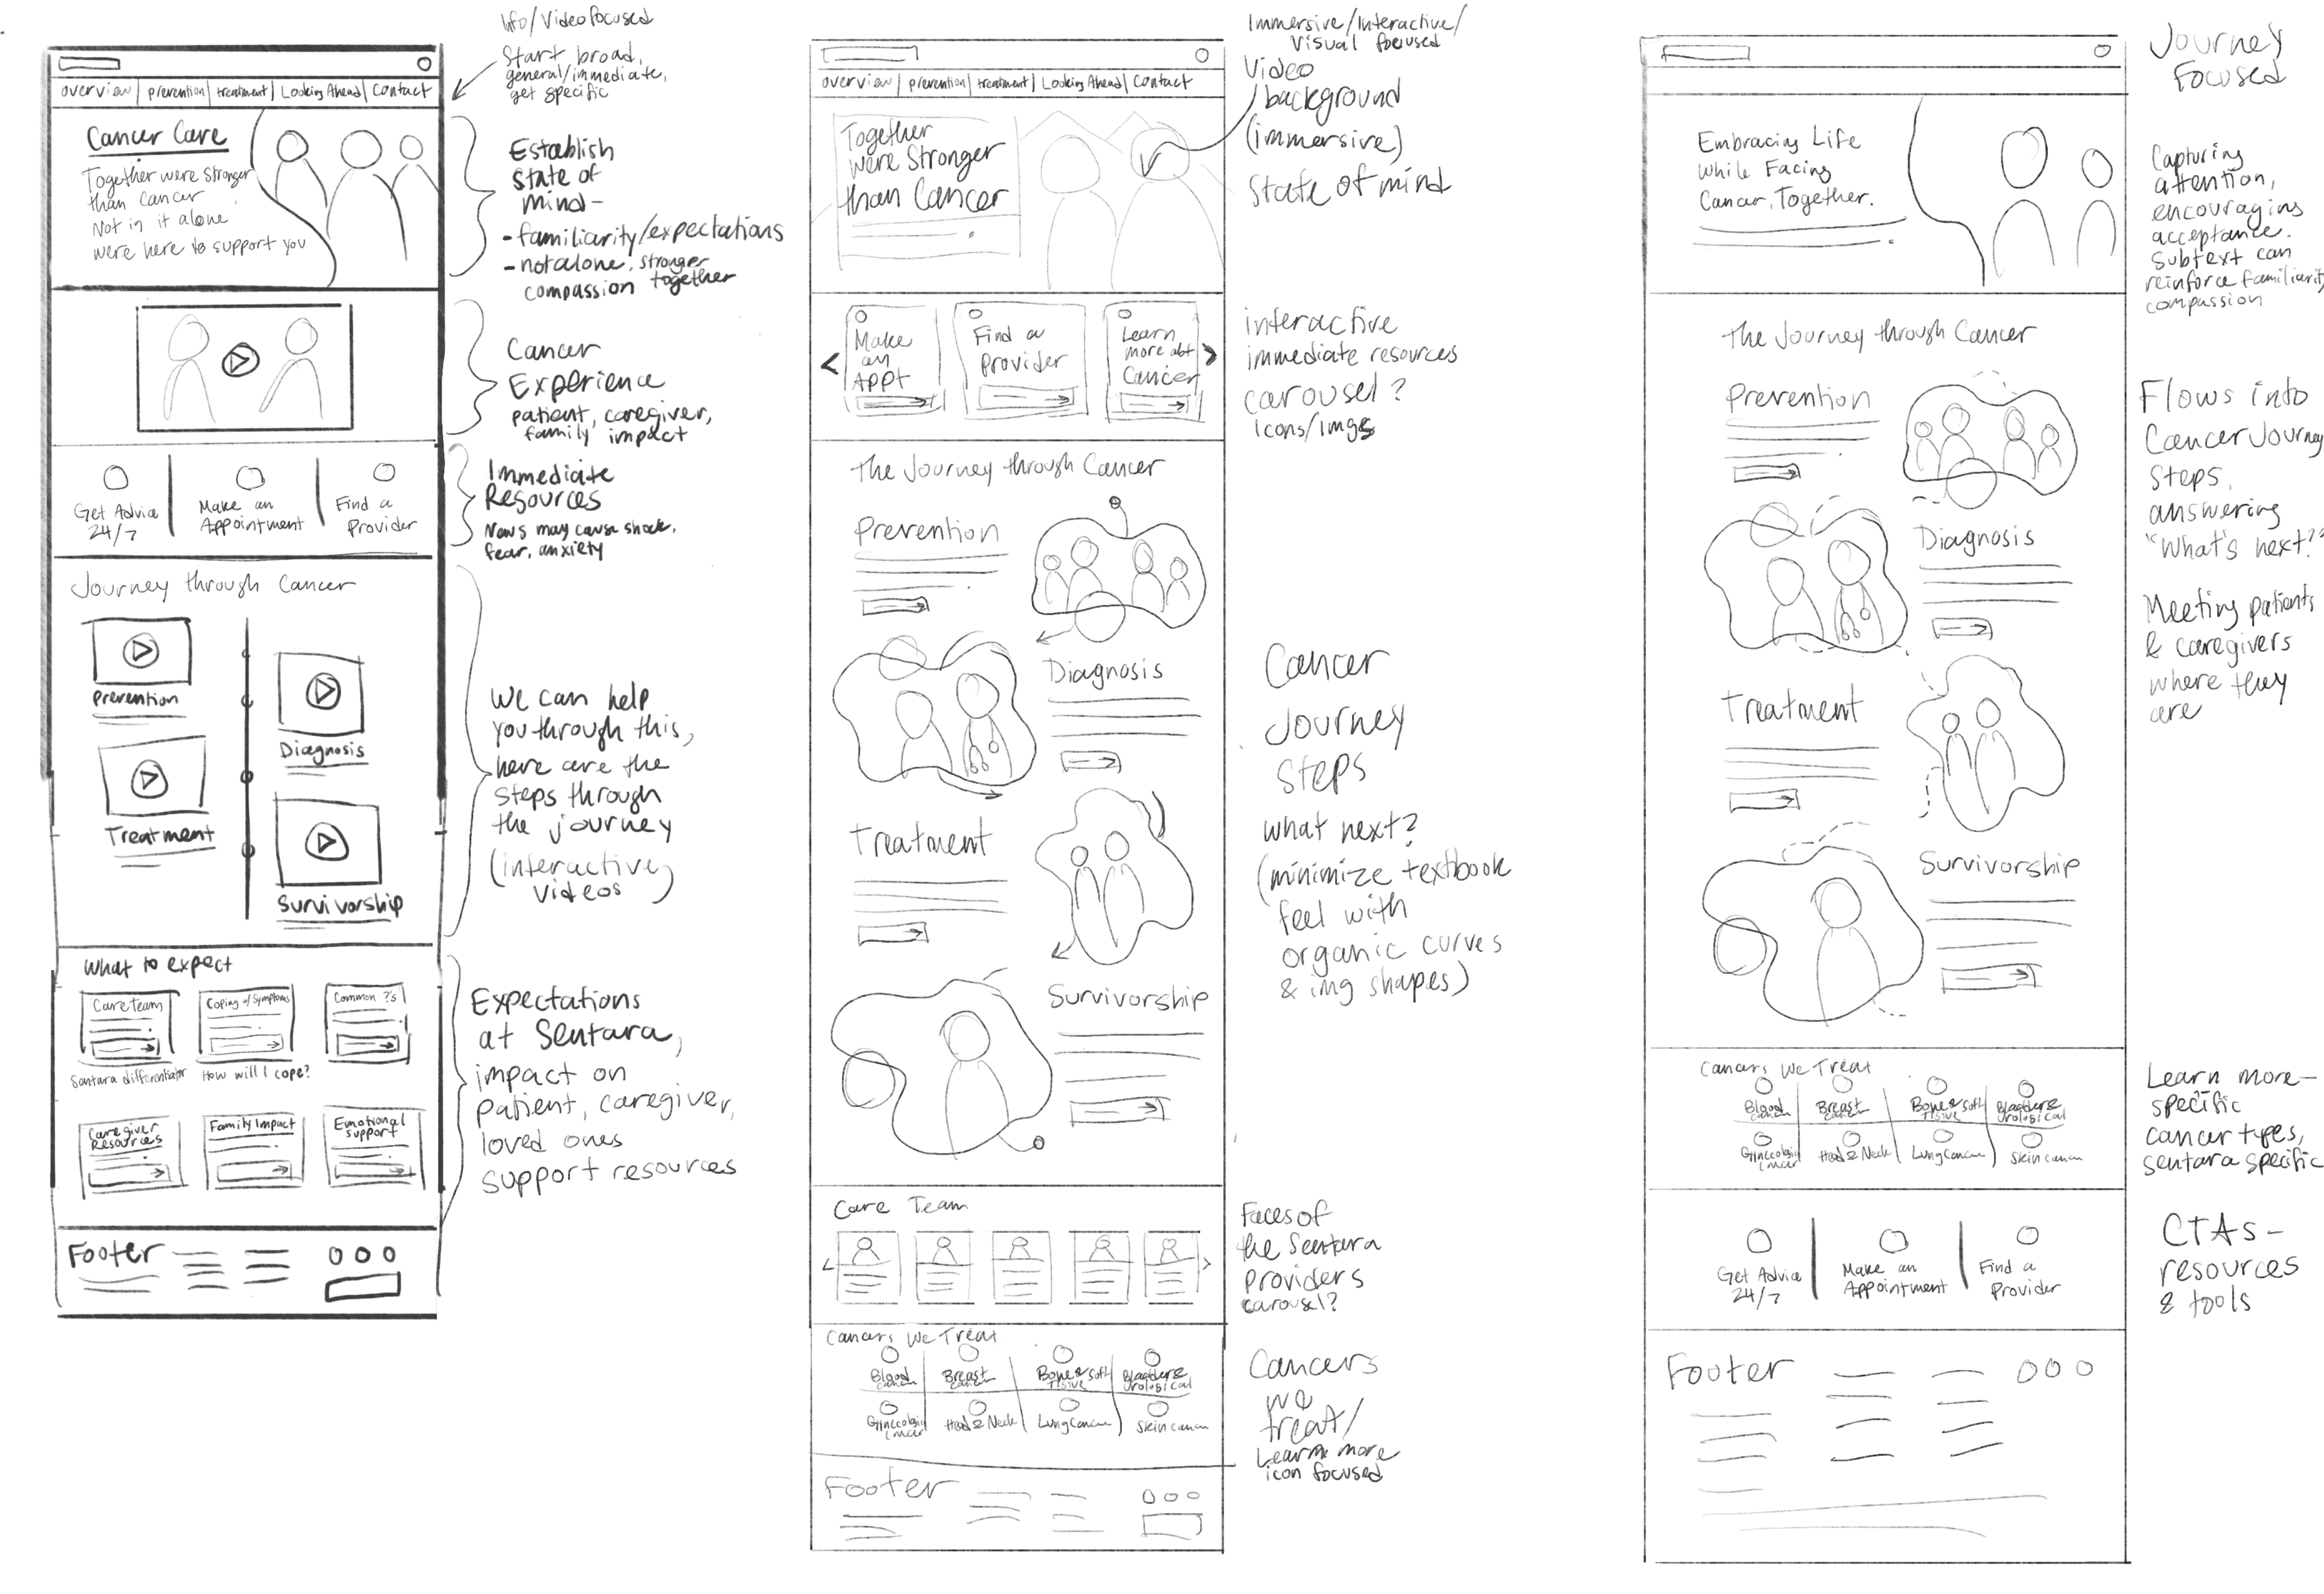 Info/Video focused
Start broad,
general/immediate,
get specific
overview | prevention | treatment | Looking Ahead | Contact
Cancer Care
Together were Stronger
than Cancer
Not in it alone
were here to support you
Establish
State of
mind-
- familiarity/expectations
- not alone, stronger
together
compassion
Cancer
Experience
patient, caregiver,
family impact
Get Advice
24/7
Make an
Appointment
Find a
Provider
Immediate
Resources
News may cause shock,
fear, anxiety
Journey through Cancer
Prevention
Diagnosis
Treatment
Survivorship
We can help
you through this,
here are the
steps through
the journey
(interactive
videos)
What to expect
Care Team
Coping w/ Symptoms
Common ?'s
Sentara differentiator
How will I cope?
Caregiver
Resources
Family Impact
Emotional
Support
Expectations
at Sentara,
impact on
patient, caregiver,
loved ones
support resources
Footer
Immersive/Interactive/
Visual focused
Video
background
(immersive)
State of mind
overview | prevention | treatment | Looking Ahead | Contact
Together
were Stronger
than Cancer
Make
an
Appt
Find a
Provider
Learn
more abt
Cancer
interactive
immediate resources
carousel?
Icons/Imgs
The Journey through Cancer
Prevention
Diagnosis
Treatment
Survivorship
Cancer
Journey
Steps
what next?
(minimize textbook
feel with
organic curves
& img shapes)
Care Team
Faces of
the Sentara
providers
carousel?
Cancers We Treat
Blood
cancer
Breast
cancer
Bone & Soft
Tissue
Bladder &
Urological
Gynecologic
Cancer
Head & Neck
Lung Cancer
Skin Cancer
Cancers
we
treat/
Learn more
icon focused
Footer
Journey
Focused
Embracing Life
While Facing
Cancer, Together.
Capturing
attention,
encouraging
acceptance.
Subtext can
reinforce familiarity
compassion
The Journey through Cancer
Prevention
Diagnosis
Treatment
Survivorship
Flows into
Cancer Journey
Steps,
answering
"What's next?"
Meeting patients
& caregivers
where they
are
Cancers We Treat
Blood
cancer
Breast
cancer
Bone & Soft
Tissue
Bladder &
Urological
Gynecologic
Cancer
Head & Neck
Lung Cancer
Skin Cancer
Learn more-
specific
cancer types,
sentara specific
Get Advice
24/7
Make an
Appointment
Find a
Provider
CTAs-
resources
& tools
Footer